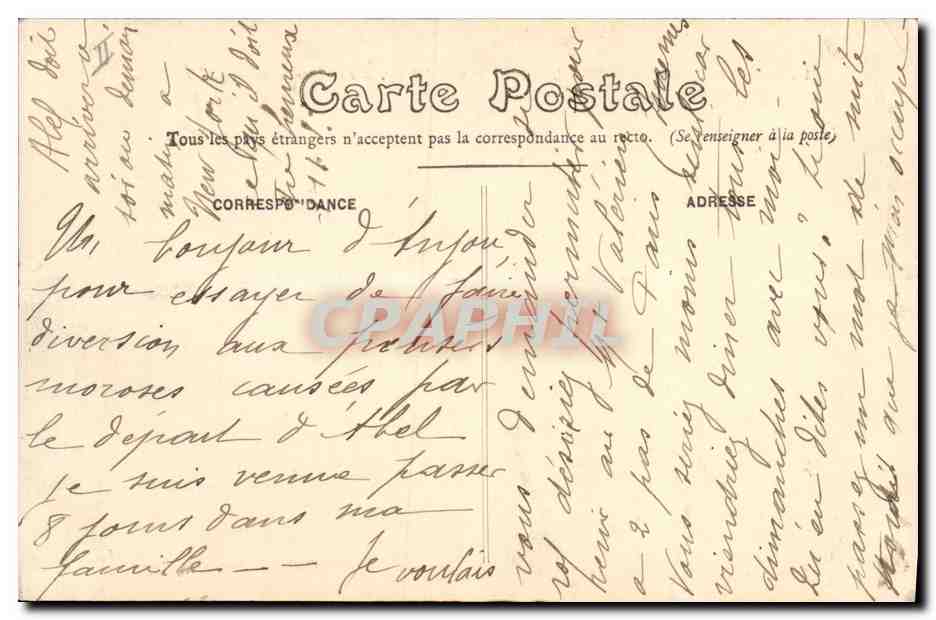 Carte Postale
Tous les pays étrangers n'acceptent pas la correspondance au recto. (Se renseigner à la poste)
CORRESPONDANCE
ADRESSE
Un bonjour d'Anjou
pour essayer de faire
diversion aux pensées
moroses causées par
le départ d'Abel
je suis venue passer
8 jours dans ma
famille -- Je voulais
vous demander si
vous désiriez permuter pour
venir au Mt Valérien
à 2 pas de Paris
Vous seriez moins seul car
viendriez diner tous les
dimanches avec moi -
Qu'en dites vous?
un mot de suite
que je m'en occupe -
Abel doit
arriver
soir ou demain
matin a
New York
CPAPHIL